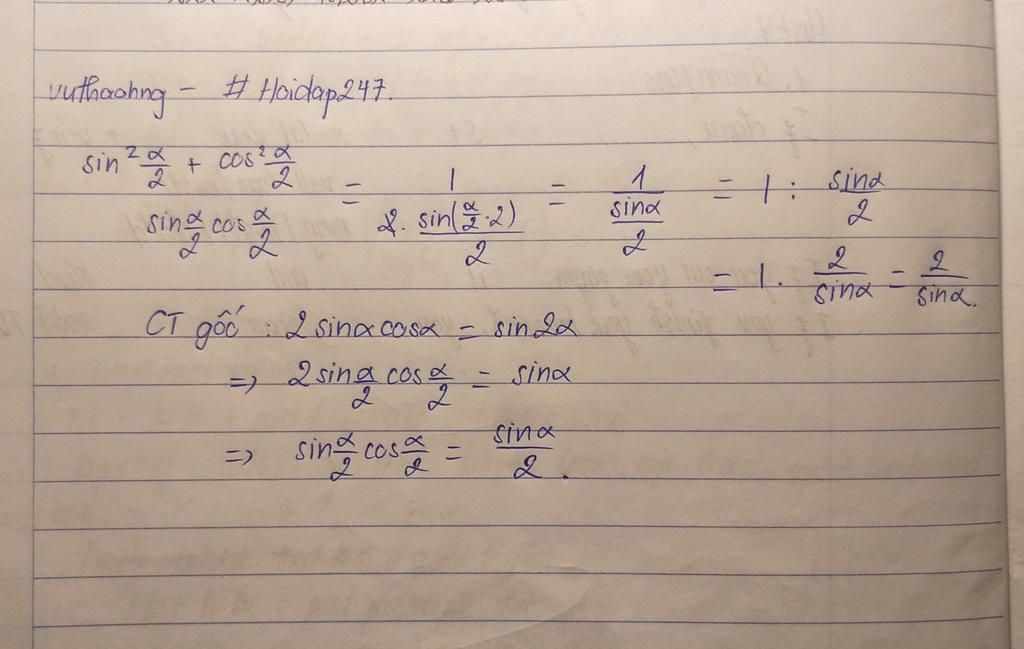 vuthaohng - # Hoidap247.
sin² α/2 + cos² α/2 / sin α/2 cos α/2 = 1 / (sin(α/2 · 2) / 2) = 1 / (sinα / 2) = 1 : sinα / 2
= 1 · 2 / sinα = 2 / sinα.
CT gốc : 2 sinα cosα = sin 2α
=> 2 sin α/2 cos α/2 = sinα
=> sin α/2 cos α/2 = sinα / 2 .